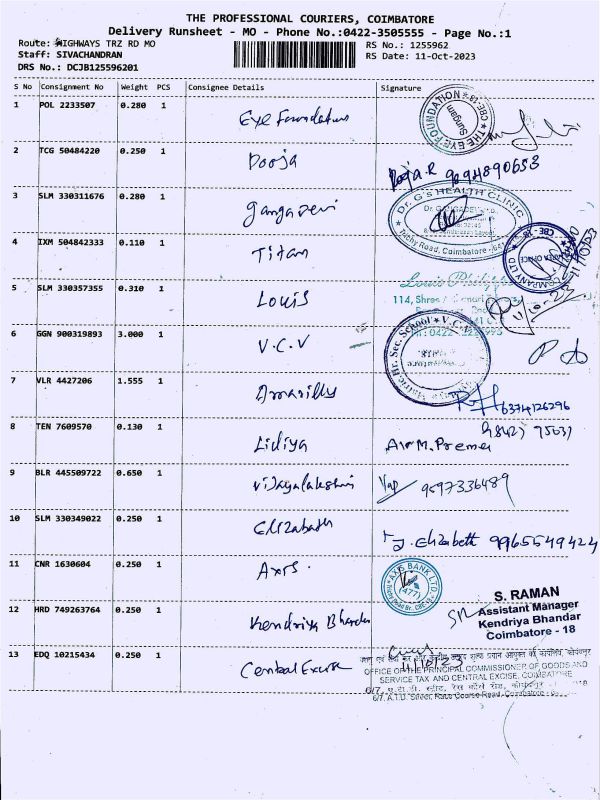 THE PROFESSIONAL COURIERS, COIMBATORE
Delivery Runsheet - MO - Phone No.:0422-3505555 - Page No.:1
Route: HIGHWAYS TRZ RD MO
RS No.: 1255962
Staff: SIVACHANDRAN
RS Date: 11-Oct-2023
DRS No.: DCJB125596201
S No Consignment No Weight PCS Consignee Details Signature
1 POL 2233507 0.280 1 Eye Foundation
THE EYE FOUNDATION Sungam CBE-18
2 TCG 50484220 0.250 1 Pooja Pooja.R 9094890653
3 SLM 330311676 0.280 1 Gangadevi
Dr. G'S HEALTH CLINIC
Trichy Road, Coimbatore
4 IXM 504842333 0.110 1 Titan
COMPANY LTD CBE - 18
5 SLM 330357355 0.310 1 Louis Louis Philippe
114, Shree
6 GGN 900319893 3.000 1 V.C.V
Matric. Hr. Sec. School V.C.V
7 VLR 4427206 1.555 1
6374126296
8 TEN 7609570 0.130 1 Lidiya M. Prema
9 BLR 445509722 0.650 1 Vijayalakshmi 9597336489
10 SLM 330349022 0.250 1 Elizabath J. Elizabeth 9965549424
11 CNR 1630604 0.250 1 Axis.
AXIS BANK LTD. (477)
12 HRD 749263764 0.250 1 Kendriya Bhandar
S. RAMAN
Assistant Manager
Kendriya Bhandar
Coimbatore - 18
13 EDQ 10215434 0.250 1 Central Excise
11/10/23
OFFICE OF THE PRINCIPAL COMMISSIONER OF GOODS AND
SERVICE TAX AND CENTRAL EXCISE, COIMBATORE
6/7, A.T.D. Street, Race Course Road, Coimbatore